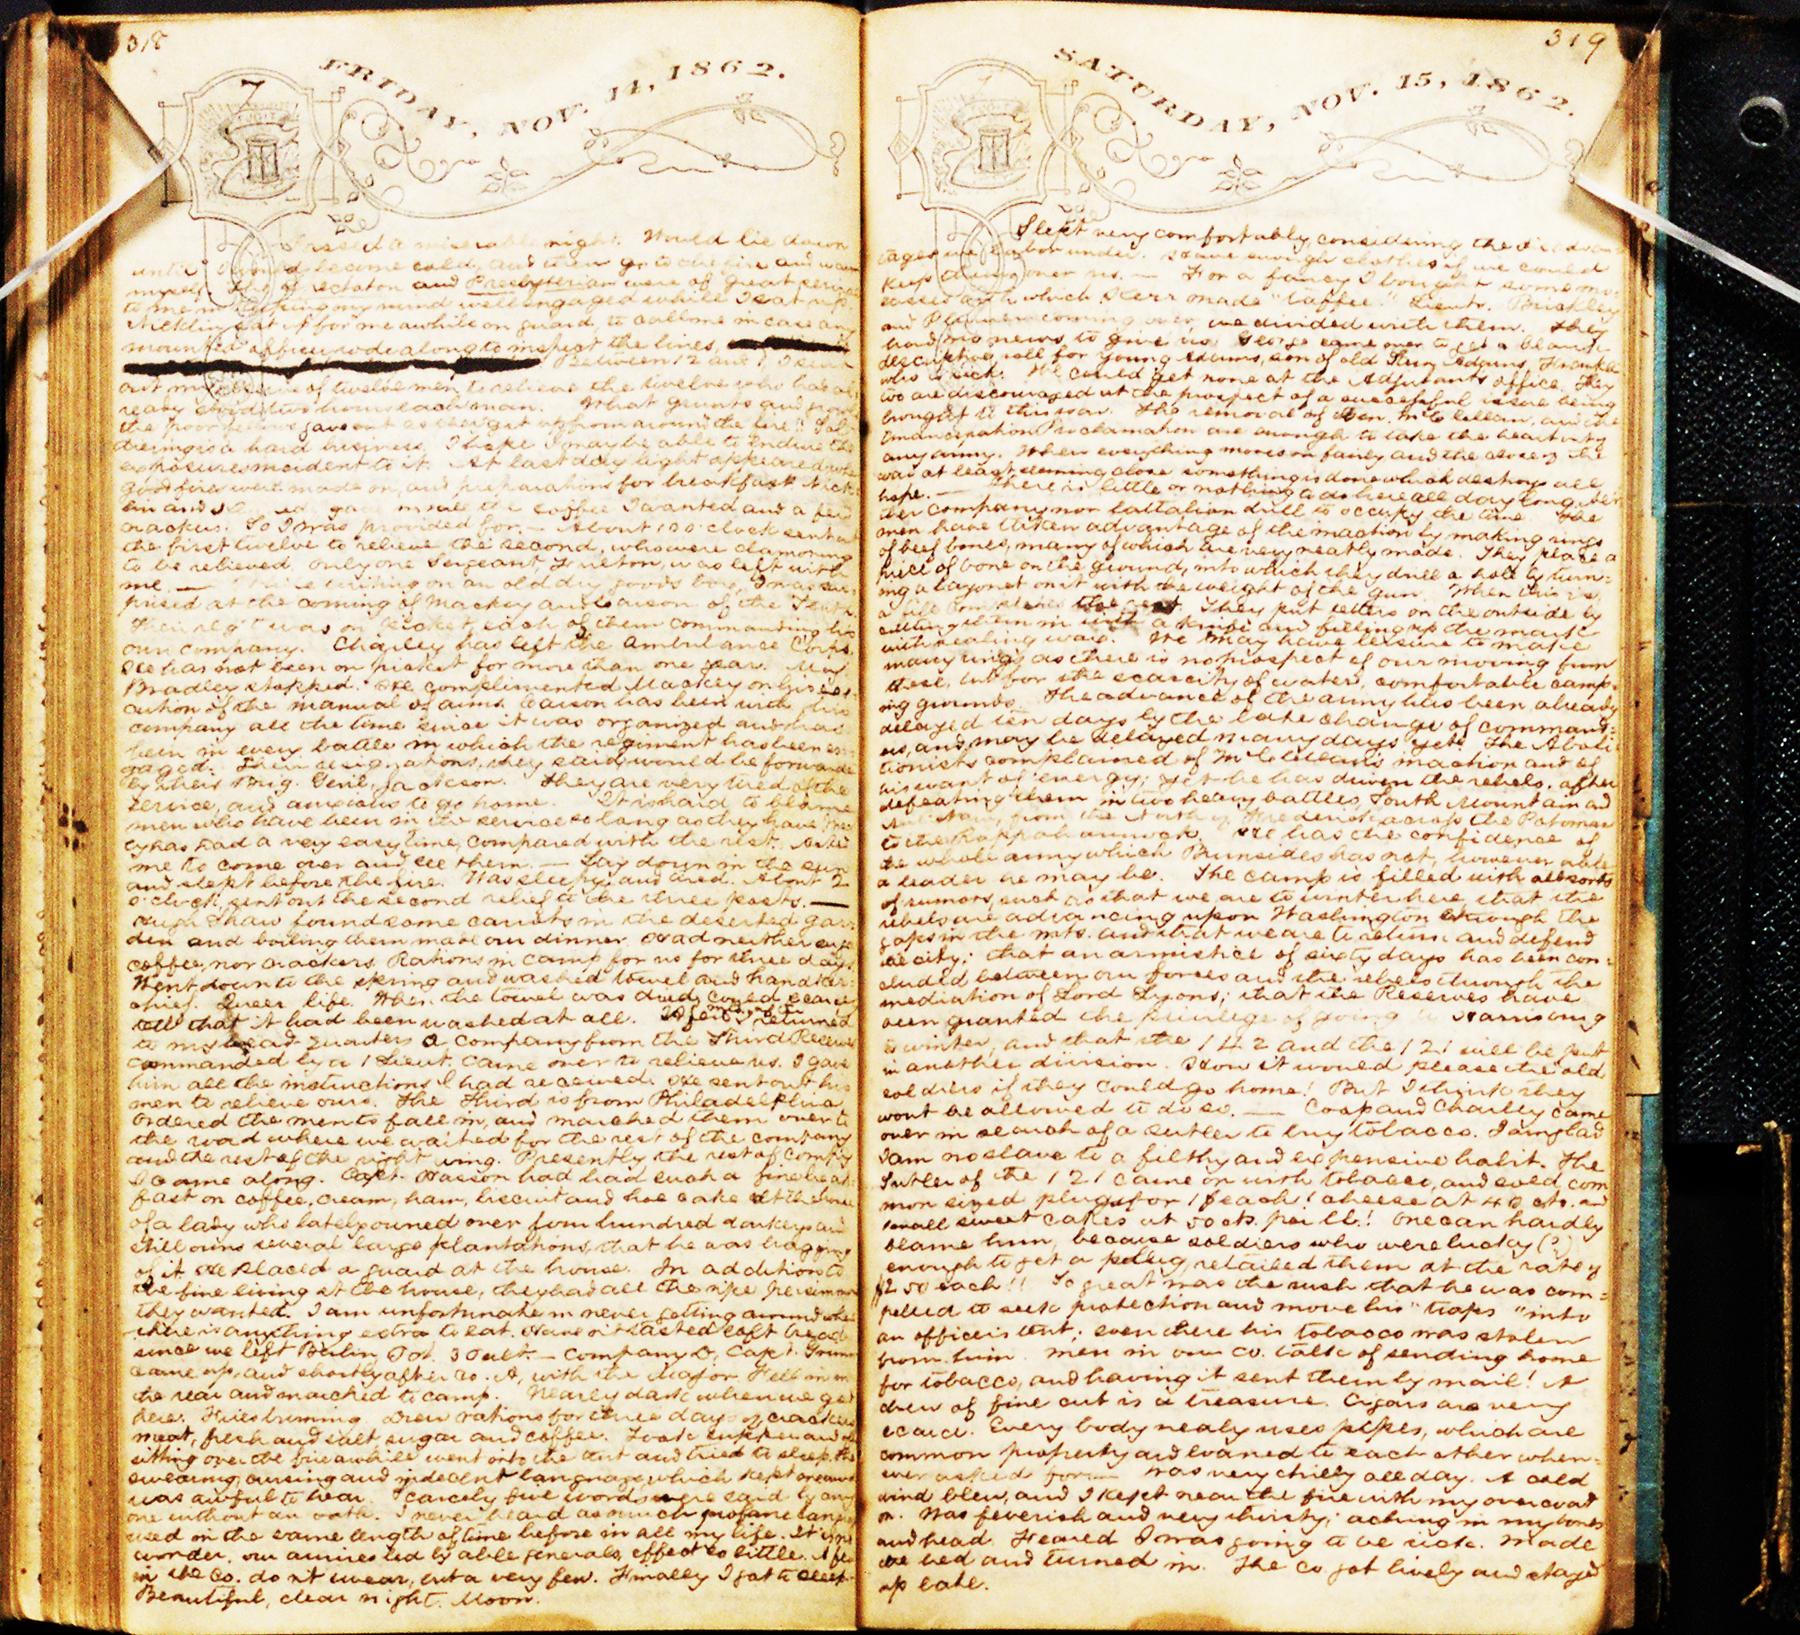 318
FRIDAY, NOV. 14, 1862.
Passed a miserable night. Would lie down
until I became cold, and then go to the fire and warm
myself. The Spectator and Presbyterian were of great service
to me in keeping my mind well engaged while I sat up.
Nicklin sat up for me awhile on guard, to call me in case any
mounted officer rode along to inspect the lines,
Between 12 and 1 I sent
out my relief of twelve men, to relieve the twelve who had al-
ready stood two hours each man. What grunts and growls
the poor fellows gave out as they got up from around the fire! Sol-
diering is a hard business. I hope I may be able to endure the
exposures incident to it. At last day light appeared, when
good fires were made on, and preparations for breakfast. Nick-
lin and gave me all the coffee I wanted and a few
crackers. So I was provided for. — About 10 o'clock sent out
the first twelve to relieve the second, who were clamoring
to be relieved only one Sergeant, Fulton, was left with
me. — writing on an old dry goods box, I was sur-
prised at the coming of Mackey and Eason of the Tenth.
Their reg't was on Picket, each of them commanding his
own company. Charley has left the Ambulance Corps.
He has not been on picket for more than one year. Maj
Bradley stopped. He complimented Mackey on his ex-
cution of the manual of arms. Eason has been with his
company all the time since it was organized and has
been in every battle in which the regiment has been en-
gaged. Their resignations, they said, would be forwarded
by their Brig. Genl, Jackson. They are very tired of the
service, and anxious to go home. It is hard to blame
men who have been in the service so long as they have.
has had a very easy time, compared with the rest. Asked
me to come over and see them. — Lay down in the sun
and slept before the fire. Was sleepy and tired. About 2
o'clock, sent out the second relief to the three posts. —
Hugh Shaw found some carrots in the deserted gar-
den and boiling them made our dinner. Had neither sugar
coffee, nor crackers. Rations in camp for us for three days.
Went down to the spring and washed towel and handker-
chief. Queer life. When the towel was dried, could scarcely
tell that it had been washed at all. After I returned
to my head quarters a company from the Third Reserves
commanded by a 1 Lieut. came over to relieve us. I gave
him all the instructions I had received. He sent out his
men to relieve ours. The Third is from Philadelphia
Ordered the men to fall in, and marched them over to
the road where we waited for the rest of the company
and the rest of the right wing. Presently the rest of Comp'y
I came along. Capt. Wasson had had such a fine break-
fast on coffee, cream, ham, biscuit and hoe cake at the house
of a lady who lately owned over four hundred darkeys and
still owns several large plantations, that he was bragging
of it. He placed a guard at the house. In addition to
the fine living at the house, they had all the ripe persimmons
they wanted. I am unfortunate in never getting around where
there is anything extra to eat. Have not tasted soft bread
since we left Berlin, Oct. 30 ult. — Company D, Capt.
came up, and shortly after Co. A, with the Major. Fell in in
the rear and marched to camp. Nearly dark when we got
here. Fires burning. Drew rations for three days of crackers
meat, fresh and salt sugar and coffee. Took supper and after
sitting over the fire awhile went into the tent and tried to sleep. The
swearing, cursing and indecent language, which kept me awake
was awful to hear. Scarcely five words were said by any
one without an oath. I never heard as much profane language
used in the same length of time before in all my life. It is no
wonder, our armies led by able generals, effect so little. A few
in the Co. do n't swear, but a very few. Finally I got to sleep.
Beautiful, clear night. Moon.
319
SATURDAY, NOV. 15, 1862.
Slept very comfortably, considering the disadvan-
tages we labor under. Have enough clothes if we could
keep them over us. — For a fancy I bought some mo-
lasses with which Kerr made "taffee." Lieuts. Brickley
and coming over, we divided with them. They
had no news, to give us. George came over to get a blank
descriptive roll for young Adams, son of old Perry Adams, Franklin
who is sick. He could get none at the Adjutants office. They
too are discouraged at the prospect of a successful issue being
brought to this war. The removal of Gen. McClellan, and the
Emancipation Proclamation are enough to take the heart out of
any army. When everything moves on fairly and the close of the
war at least, seeming close something is done which destroys all
hope. — There is little or nothing to do here all day long. Nei-
ther company nor battalion drill to occupy the time. The
men have taken advantage of the inaction by making rings
of beef bones, many of which are very neatly made. They place a
piece of bone on the ground, into which they drill a hole by turn-
ing a bayonet on it with the weight of the gun. When this is
a file completes the rest. They put letters on the outside by
cutting them in with a knife and filling up the marks
with sealing wax. We may have leisure to make
many rings as there is no prospect of our moving from
here, but for the scarcity of water, comfortable camp-
ing grounds. The advance of the army has been already
delayed ten days by the late change of command-
ers, and may be delayed many days yet! The Aboli-
tionists complained of McClellan's inaction and of
his want of energy; yet he has driven the rebels, after
defeating them in two heavy battles, South Mountain and
Antietam, from the North of Frederick across the Potomac
to the Rappahannock. He has the confidence of
the whole army which Burnsides has not, however able
a leader he may be. The camp is filled with all sorts
of rumors, such as that we are to winter here, that the
rebels are advancing upon Washington through the
gaps in the mts. and that we are to return and defend
the city; that an armistice of sixty days has been con-
cluded between our forces and the rebels through the
mediation of Lord Lyons; that the Reserves have
been granted the privilege of going to Harrisburg
to winter, and that the 142 and the 121 will be put
in another division. How it would please the old
soldiers if they could go home! But I think they
wont be allowed to do so. — Coop and Charley came
over in search of a sutler to buy tobacco. I am glad
I am no slave to a filthy and expensive habit. The
Sutler of the 121 came on with tobacco, and sold com-
mon sized plugs for 1$ each! cheese at 40 cts. and
small sweet cakes at 50 cts. per lb.! One can hardly
blame him, because soldiers who were lucky (?)
enough to get a pplug, retailed them at the rate of
$2 50 each!! So great was the rush that he was com-
pelled to seek protection and move his "traps" into
an officers tent; even there his tobacco was stolen
from him. Men in our Co. talk of sending home
for tobacco, and having it sent them by mail! A
chew of fine cut is a treasure. Cigars are very
scarce. Every body nearly uses pipes, which are
common property and loaned to each other when-
ever asked for. — Was very chilly all day. A cold
wind blew, and I kept near the fire with my overcoat
on. Was feverish and very thirsty; aching in my bones
and head. Feared I was going to be sick. Made
the bed and turned in. The Co got lively and stayed
up late.